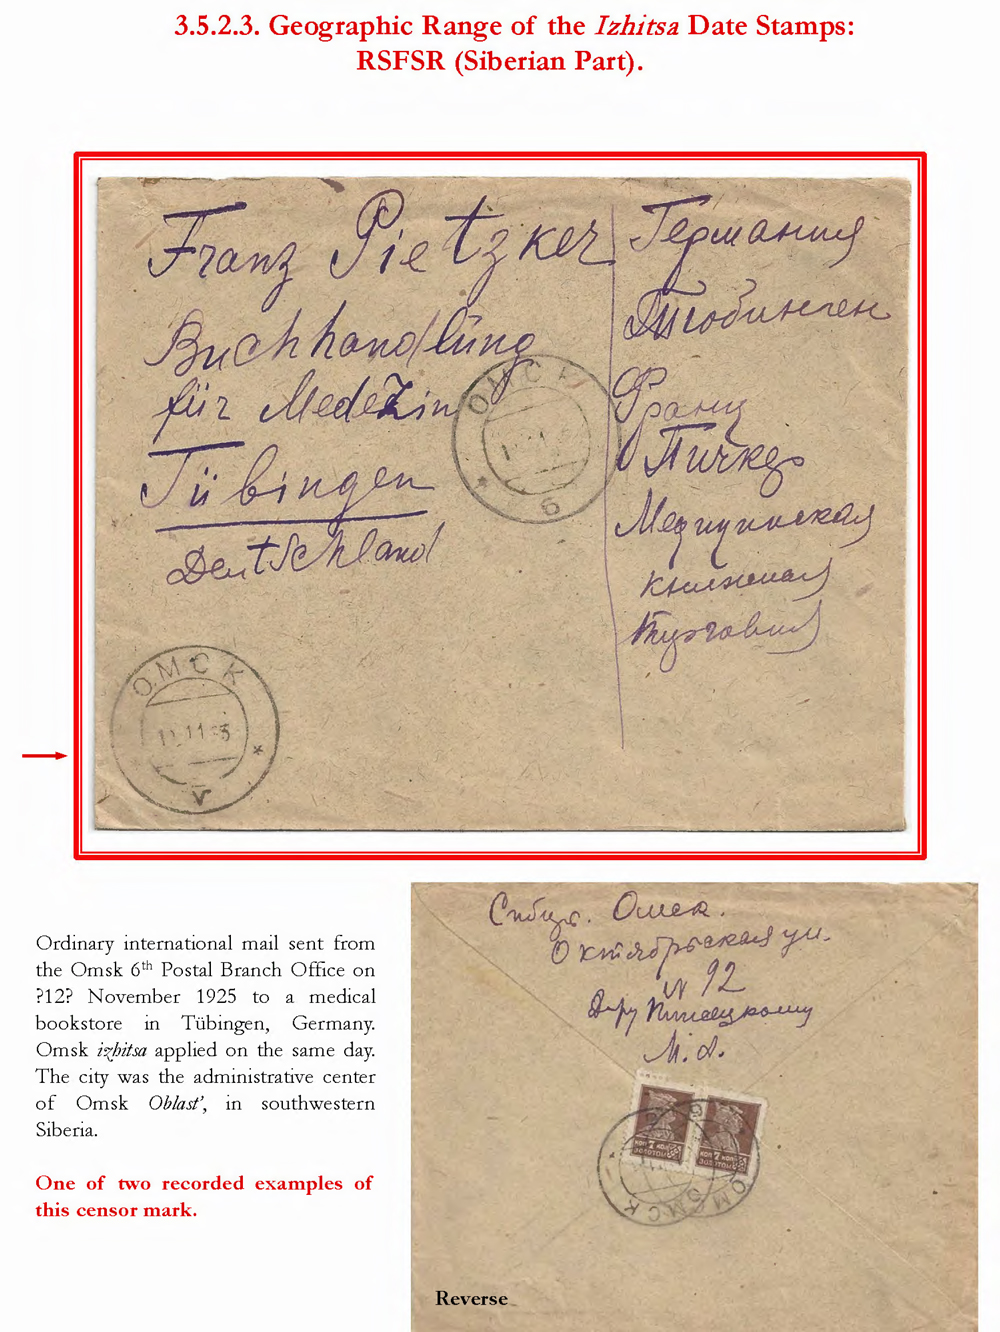 3.5.2.3. Geographic Range of the Izhitsa Date Stamps:
RSFSR (Siberian Part).
Franz Pietzker
Buchhandlüng
für Medezin
Tübingen
Deutschland
Германия
Тюбинген
Франц
Пичкер
Медицинская
книжная
Торговля
ОМСК
б
ОМСК
11
v
Ordinary international mail sent from
the Omsk 6th Postal Branch Office on
?12? November 1925 to a medical
bookstore in Tübingen, Germany.
Omsk izhitsa applied on the same day.
The city was the administrative center
of Omsk Oblast’, in southwestern
Siberia.
One of two recorded examples of
this censor mark.
Омск.
Октябрьская ул.
N 92
М. Л.
7 КОП
ЗОЛОТОМ
КОП 7 КОП
ЗОЛОТОМ
ОМСК
ОМСК
Reverse